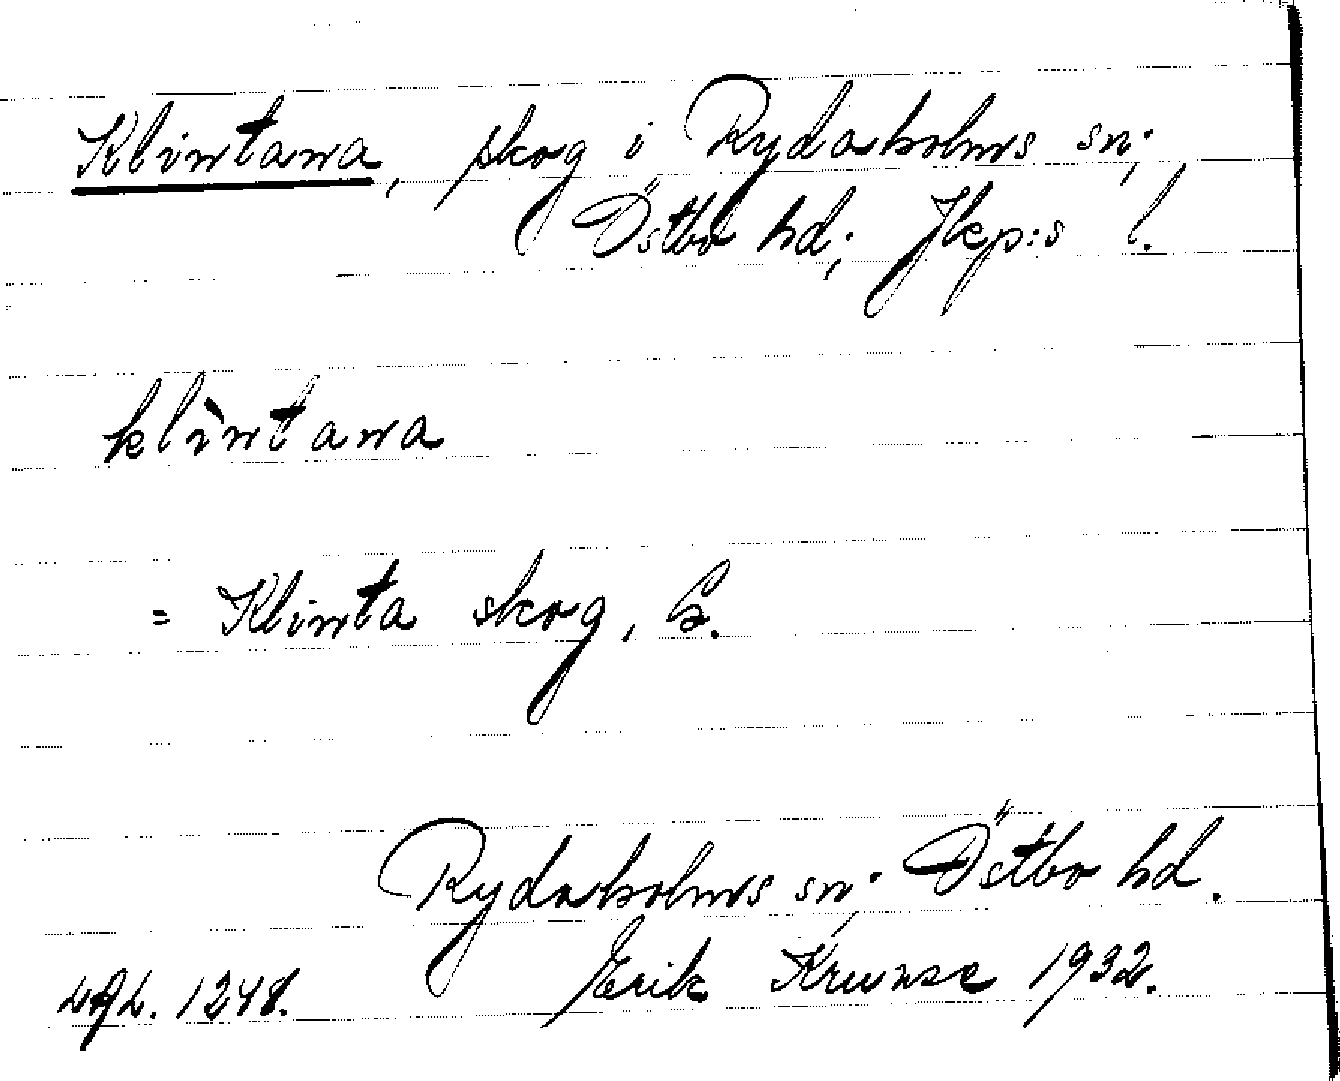 Klintana, skog i Rydaholms sn;
Östbo hd; Jkp:s l.
klìntana
= Klinta skog, G.
Rydaholms sn. Östbo hd.
Erik Krunse 1932.
LAL. 1248.